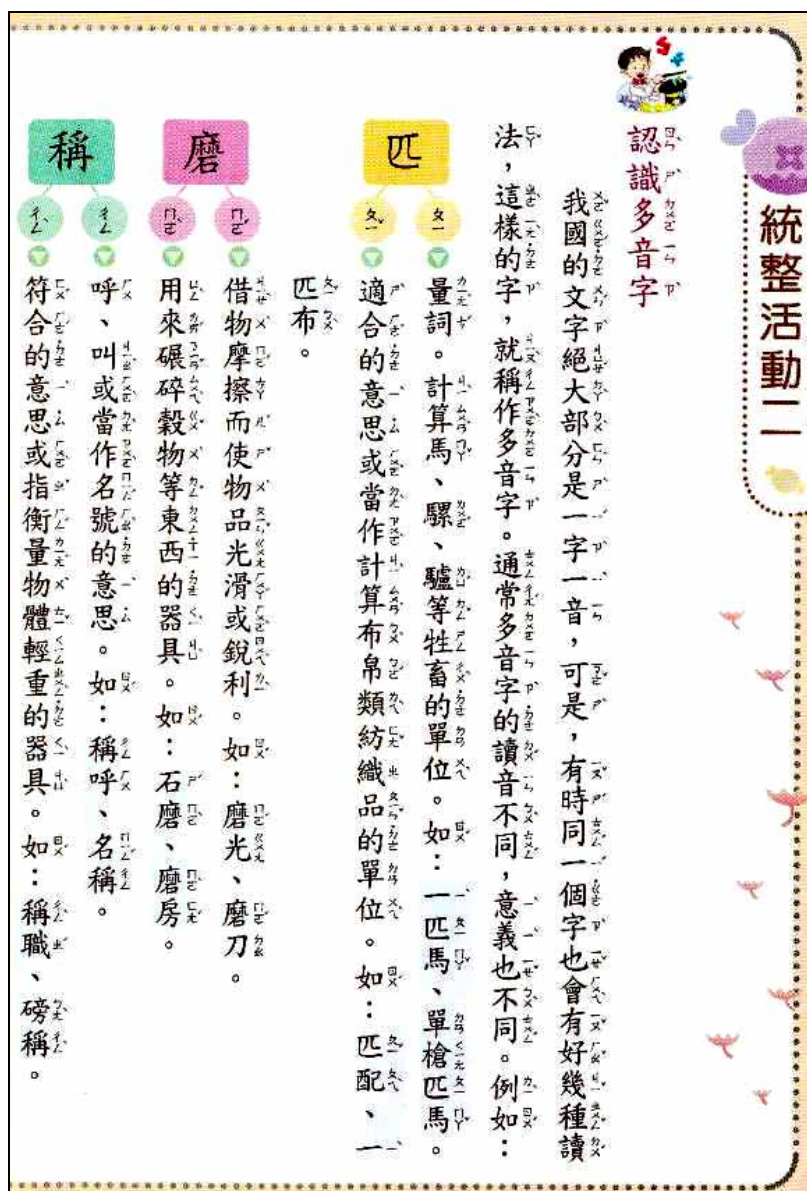 統整活動二
認識多音字
我國的文字絕大部分是一字一音，可是，有時同一個字也會有好幾種讀
法，這樣的字，就稱作多音字。通常多音字的讀音不同，意義也不同。例如：
匹
ㄆㄧ
量詞。計算馬、騾、驢等牲畜的單位。如：一匹馬、單槍匹馬。
ㄆㄧˇ
適合的意思或當作計算布帛類紡織品的單位。如：匹配、一
匹布。
磨
ㄇㄛˊ
借物摩擦而使物品光滑或銳利。如：磨光、磨刀。
ㄇㄛˋ
用來碾碎穀物等東西的器具。如：石磨、磨房。
稱
ㄔㄥ
呼、叫或當作名號的意思。如：稱呼、名稱。
ㄔㄥˋ
符合的意思或指衡量物體輕重的器具。如：稱職、磅稱。